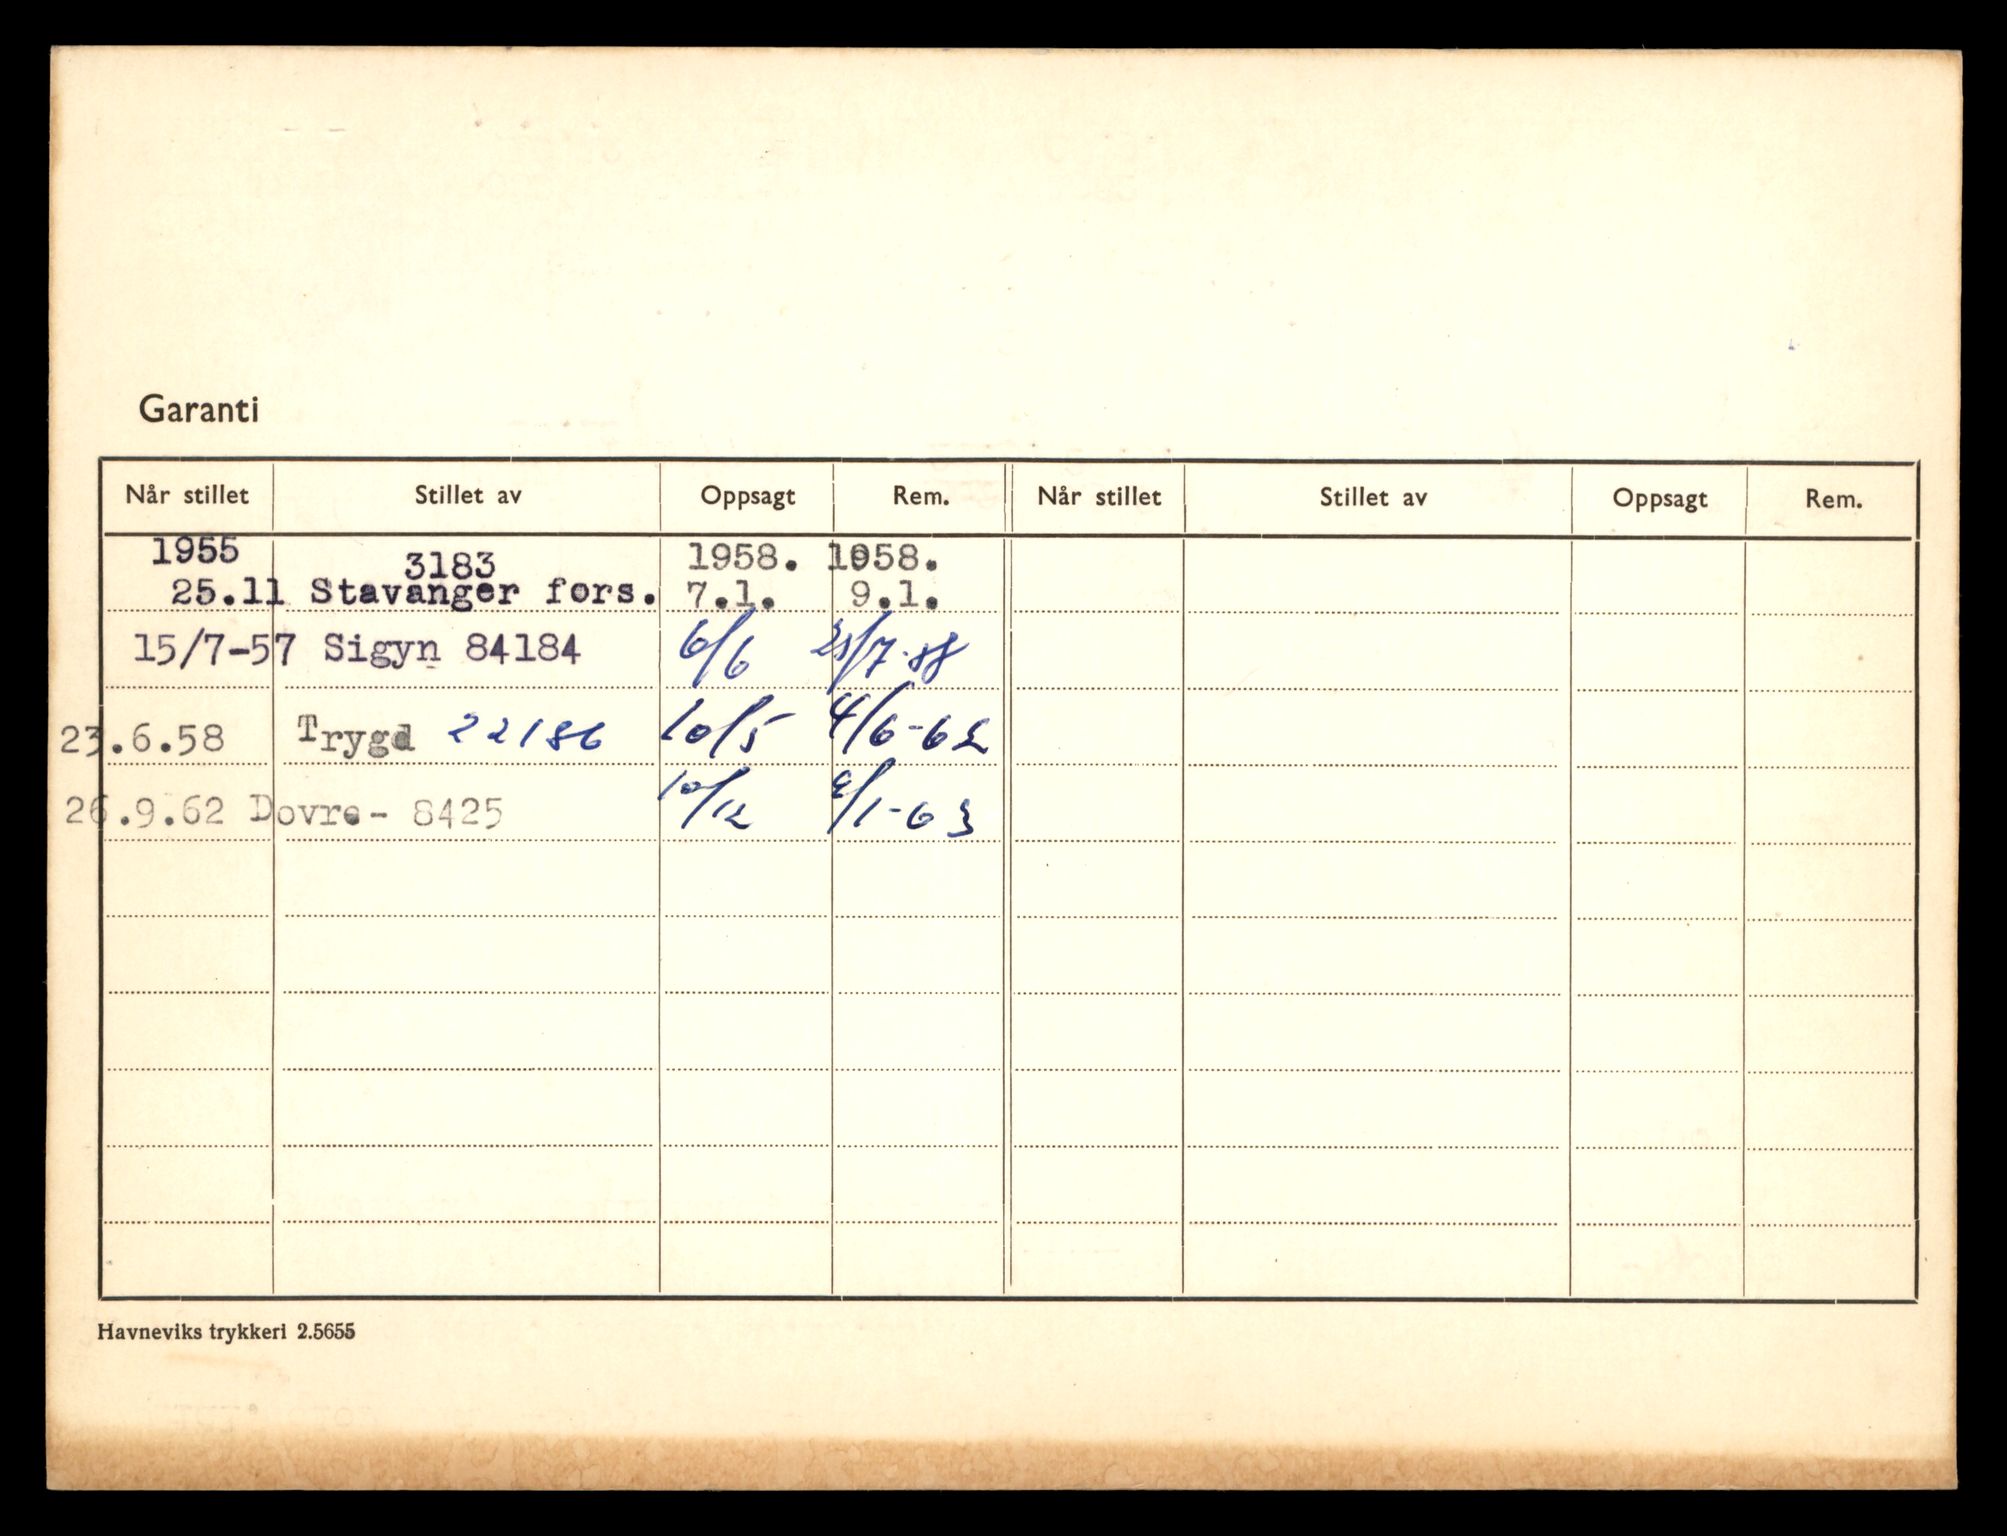 Garanti
Når stillet Stillet av Oppsagt Rem. Når stillet Stillet av Oppsagt Rem.
1955 3183 1958. 1958.
25.11 Stavanger fors. 7.1. 9.1.
15/7-57 Sigyn 84184 6/6 23/7-58
23.6.58 Trygd 22186 10/5 4/6-62
26.9.62 Dovre- 8425 10/12 9/1-63
Havneviks trykkeri 2.5655